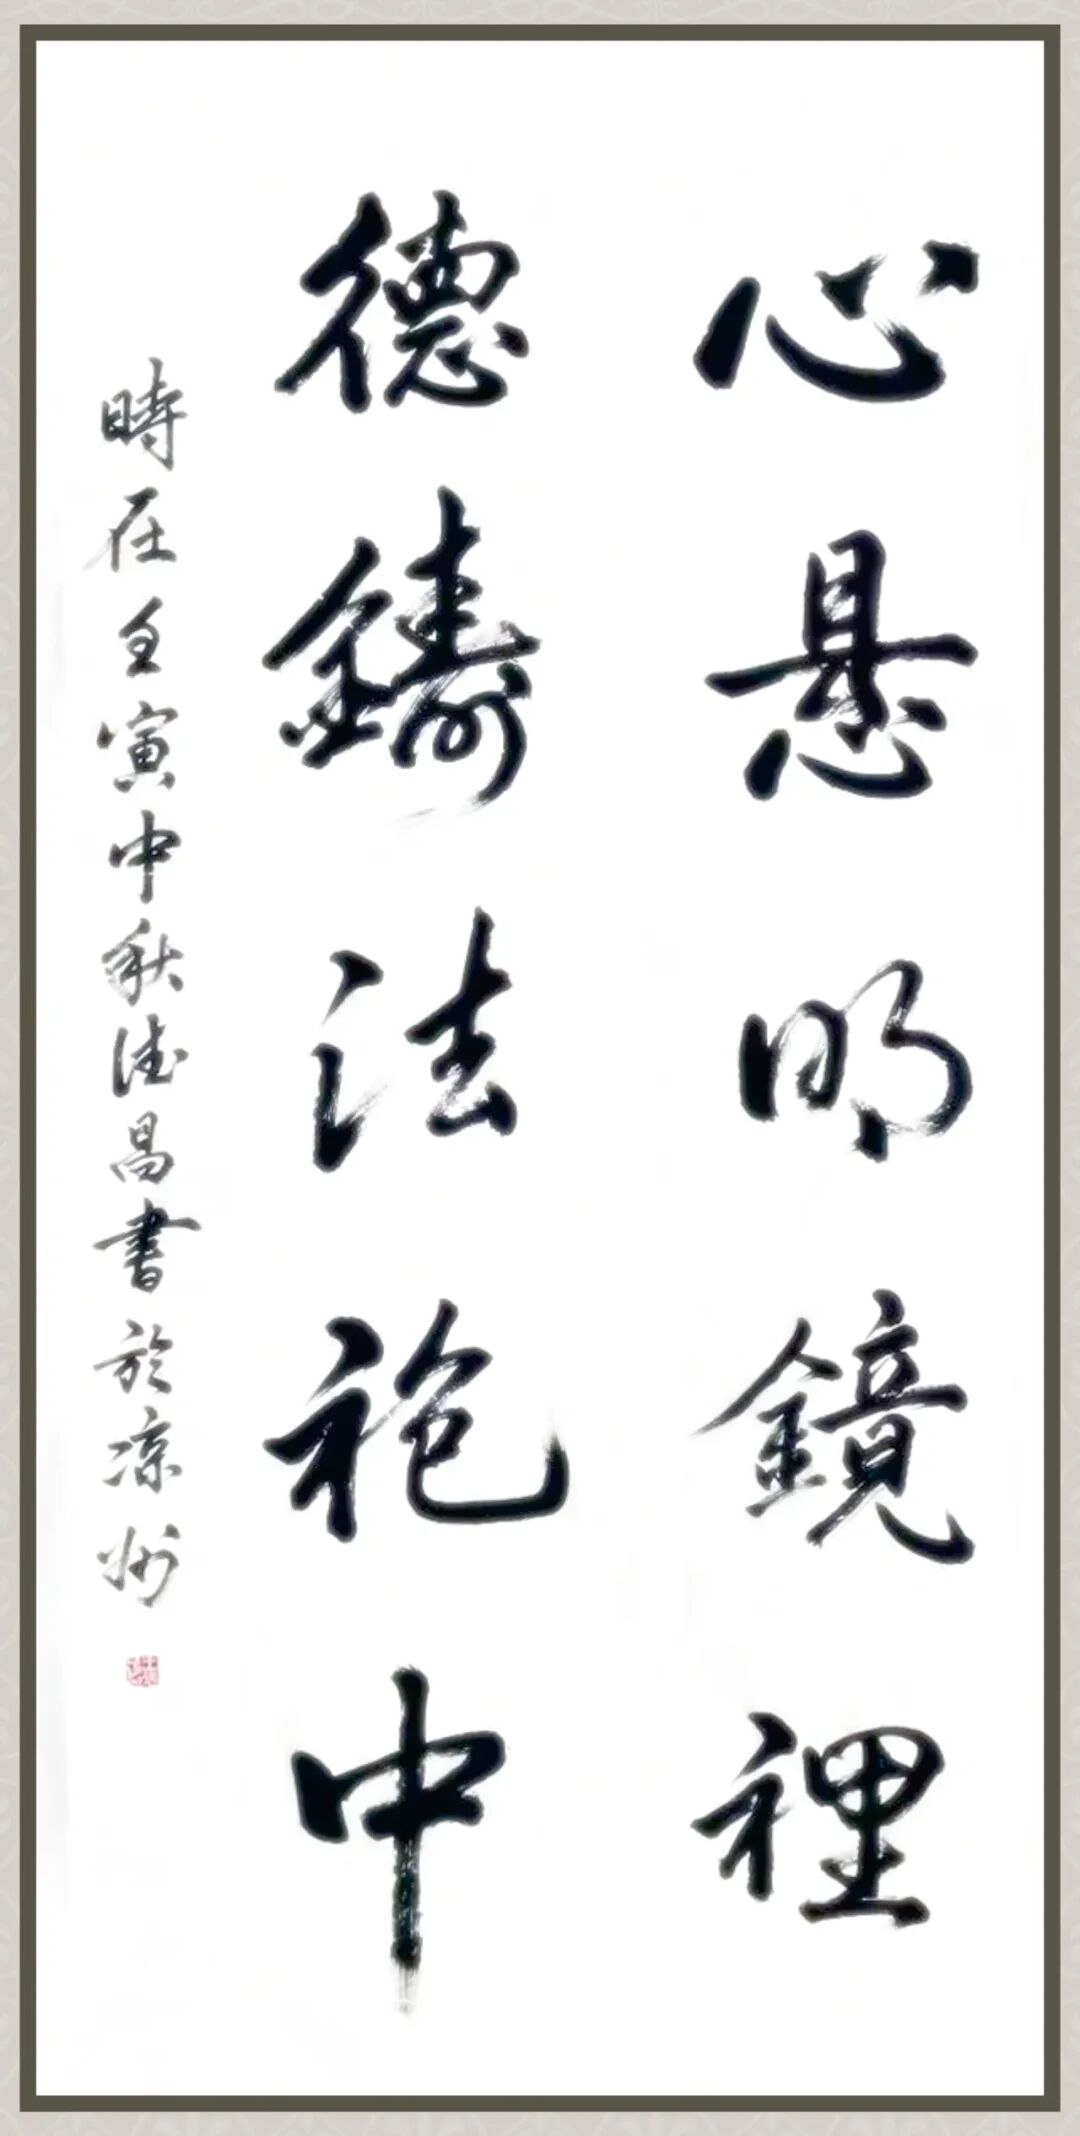 心悬明鏡裡
德鑄法袍中
時在壬寅中秋德昌書於凉州